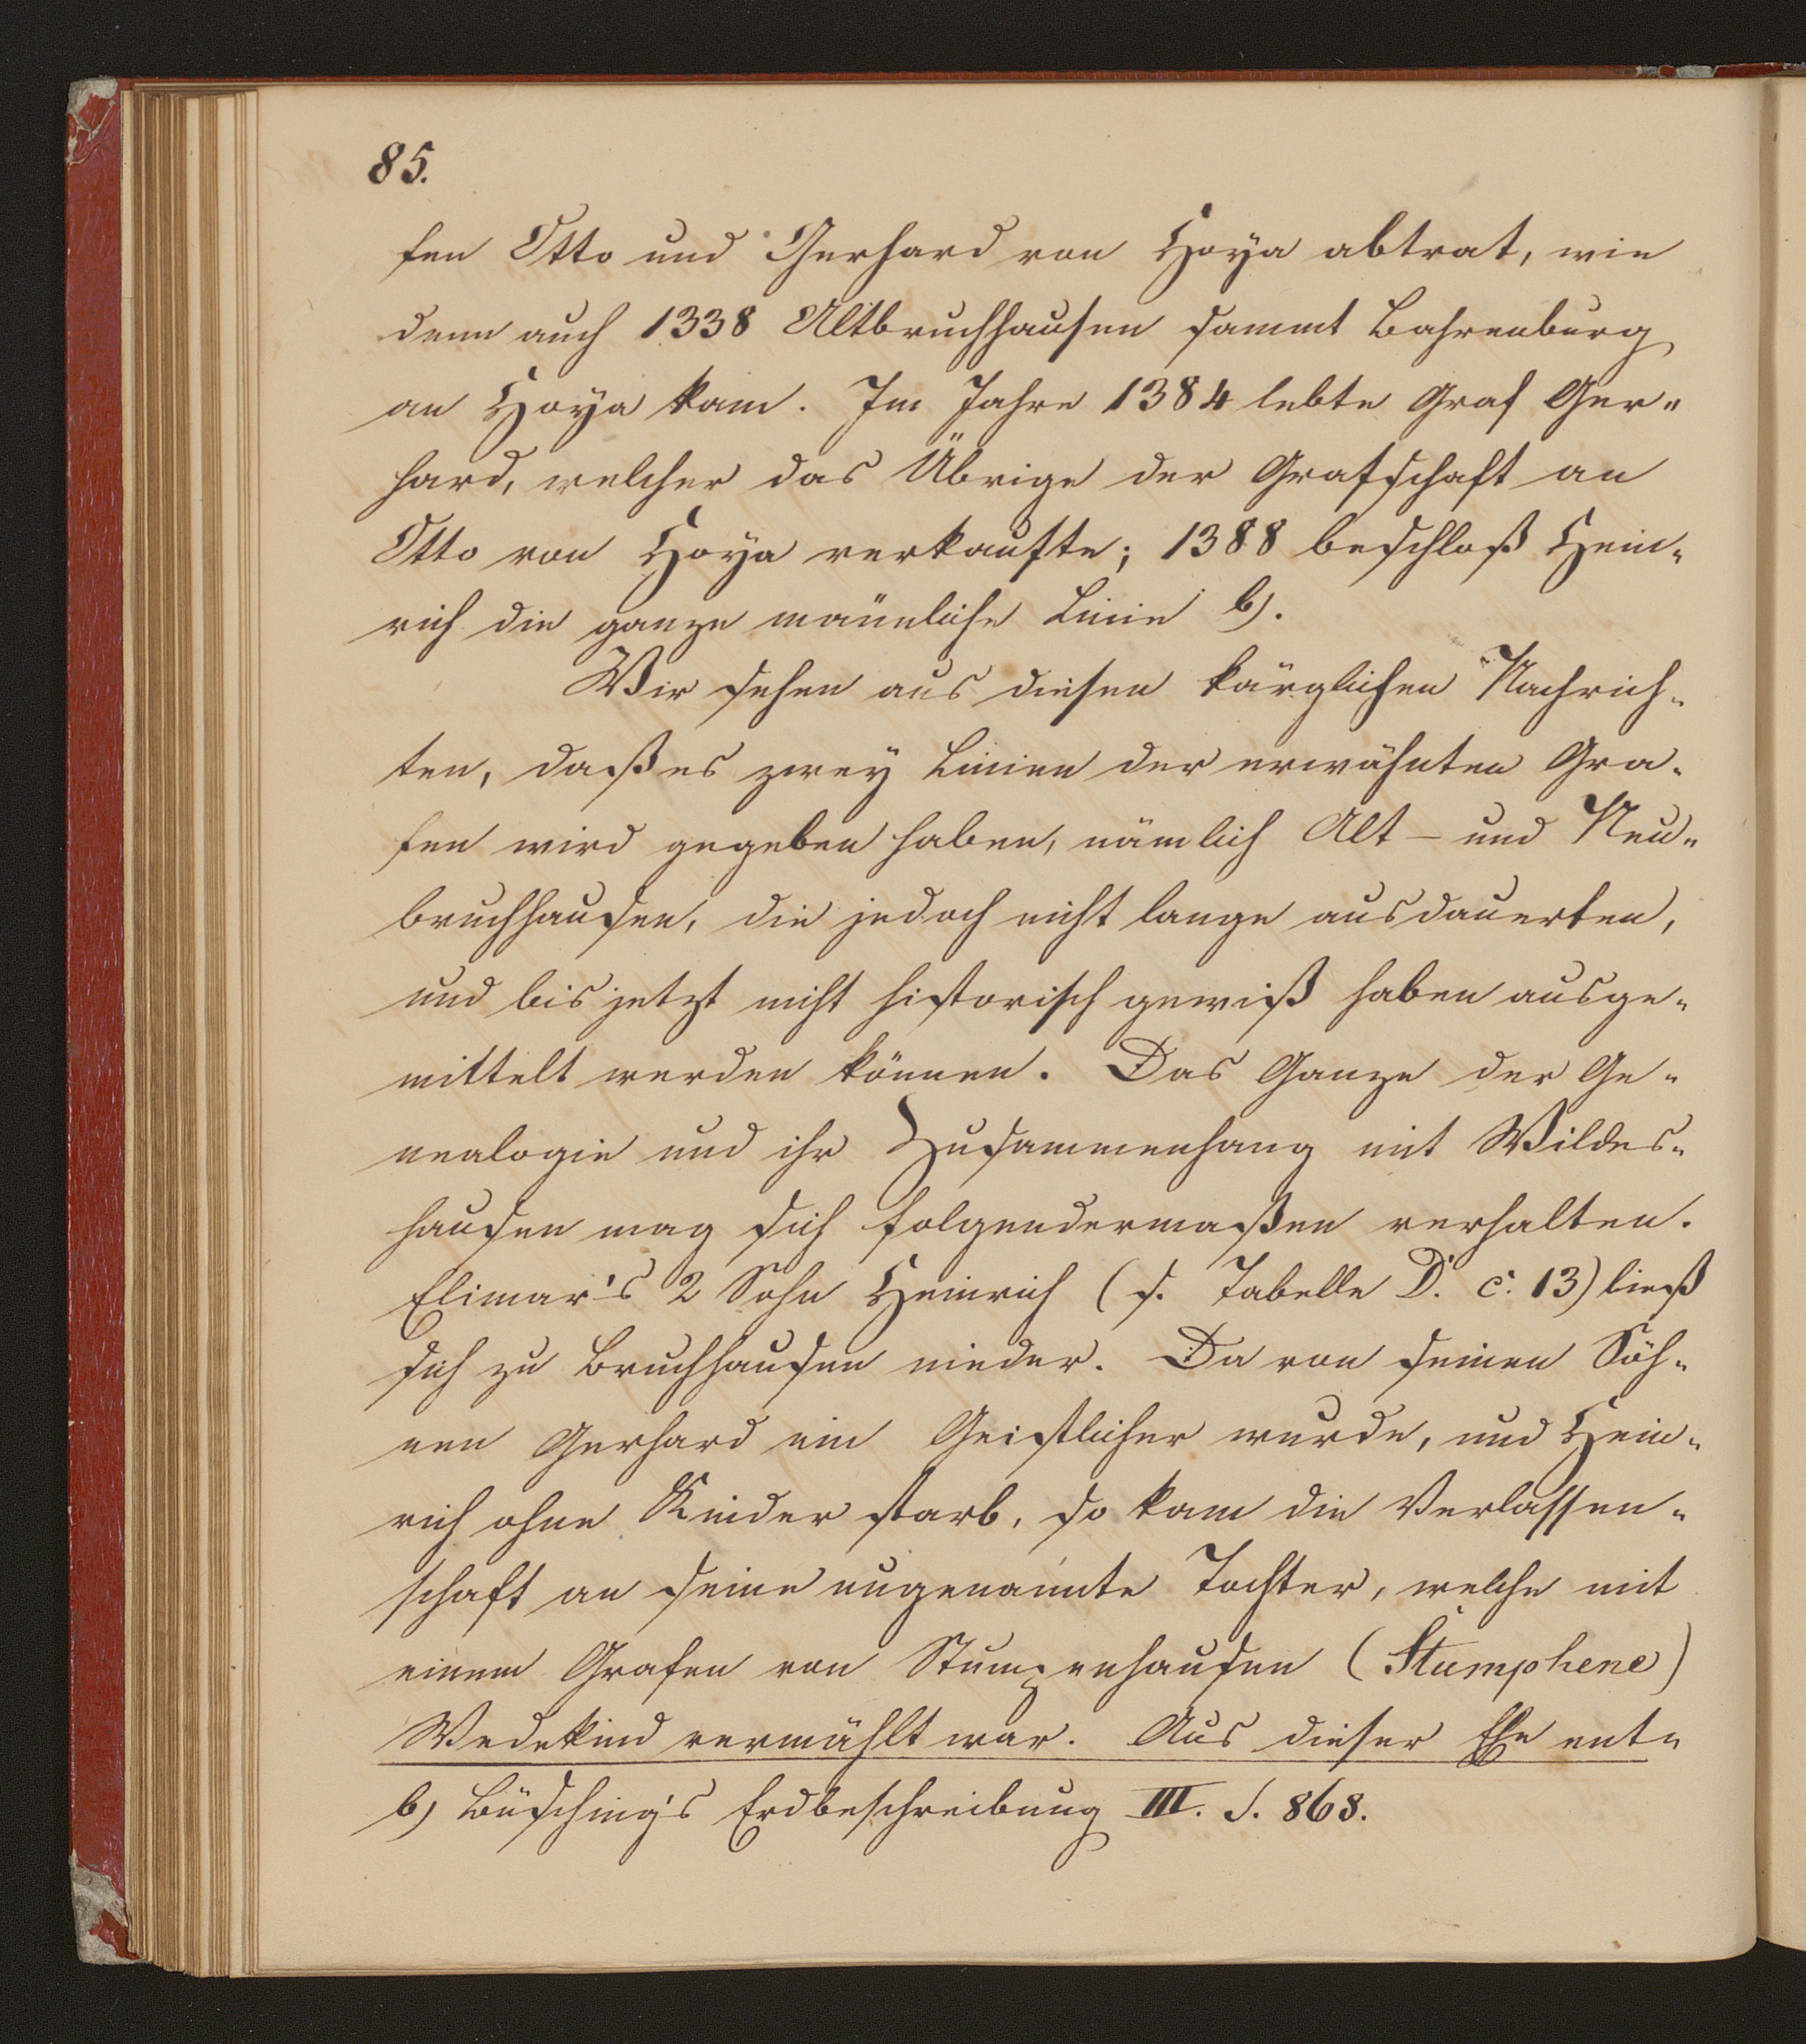 85.
fen Otto und Gerhard von Hoya abtrat, wie
denn auch 1338 Altbruchhausen sammt Bahrenburg
an Hoya kam. Im Jahre 1384 lebte Graf Ger„
hard, welcher das Übrige der Grafschaft an
Otto von Hoya verkaufte; 1388 beschloß Hein„
rich die ganze männliche Linie b).
Wir sehen aus diesen kärglichen Nachrich„
ten, daß es zwey Linien der erwähnten Gra„
fen wird gegeben haben, nämlich Alt – und Neu„
bruchhausen, die jedoch nicht lange ausdauerten,
und bis jetzt nicht historisch gewiß haben ausge„
mittelt werden können. Das Ganze der Ge„
nealogie und ihr Zusammenhang mit Wildes„
hausen mag sich folgendermaßen verhalten.
Elimar's 2 Sohn Heinrich (s. Tabelle D. c. 13) ließ
sich zu Bruchhausen nieder. Da von seinen Söh„
nen Gerhard ein Geistlicher wurde, und Hein„
rich ohne Kinder starb, so kam die Verlassen„
schaft an seine ungenannte Tochter, welche mit
einem Grafen von Stumpenhausen (Stumphene)
Wedekind vermählt war. Aus dieser Ehe ent„
b) Büsching's Erdbeschreibung III. S. 868.